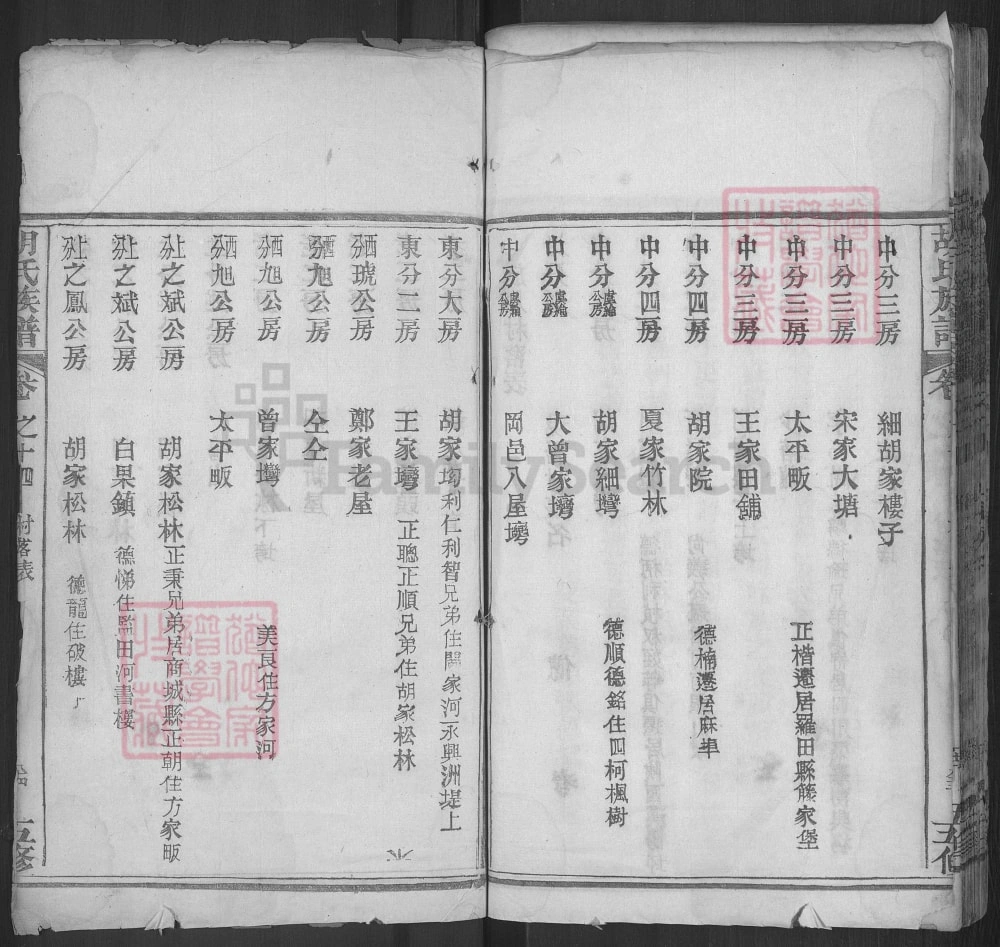 中分三房 細胡家樓子
中分三房 宋家大塘
中分三房 太平畈 正楷遷居羅田縣籐家堡
中分三房 王家田舖
中分四房 胡家院 德楠遷居麻埠
中分四房 夏家竹林
中分公房 胡家細塆 德順德銘住四柯楓樹
中分公房 大曾家塆
中分公房 岡邑八屋塆
東分大房 胡家塆利仁利智兄弟住閻家河永興洲堤上
東分二房 王家塆 正聰正順兄弟住胡家松林
西分琥公房 鄭家老屋
西分旭公房 仝仝
西分旭公房 曾家塆 美良住方家河
西分旭公房 太平畈
上分之斌公房 胡家松林正秉兄弟居商城縣正朝住方家畈
上分之斌公房 白果鎮 德悌住濫田河書樓
上分之鳳公房 胡家松林 德龍住破樓
胡氏族譜 卷之十四 村落表 五修
FamilySearch